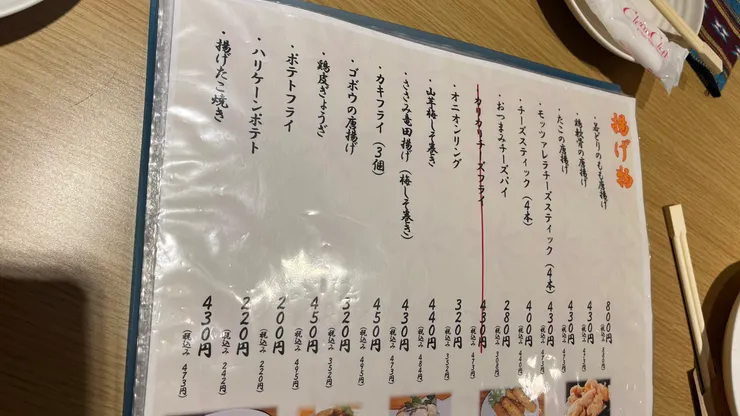 揚げ物
・若どりのもも唐揚げ 800円 (税込み 880円)
・鶏軟骨の唐揚げ 430円 (税込み 473円)
・たこの唐揚げ 430円 (税込み 473円)
・モッツァレラチーズスティック(4本) 430円 (税込み 473円)
・チーズスティック(4本) 400円 (税込み 440円)
・おつまみチーズパイ 280円 (税込み 308円)
・カリカリチーズフライ 430円 (税込み 473円)
・オニオンリング 320円 (税込み 352円)
・山芋梅しそ巻き 440円 (税込み 484円)
・ささみ竜田揚げ(梅しそ巻き) 430円 (税込み 473円)
・カキフライ(3個) 450円 (税込み 495円)
・ゴボウの唐揚げ 320円 (税込み 352円)
・鶏皮ぎょうざ 450円 (税込み 495円)
・ポテトフライ 200円 (税込み 220円)
・ハリケーンポテト 220円 (税込み 242円)
・揚げたこ焼き 430円 (税込み 473円)